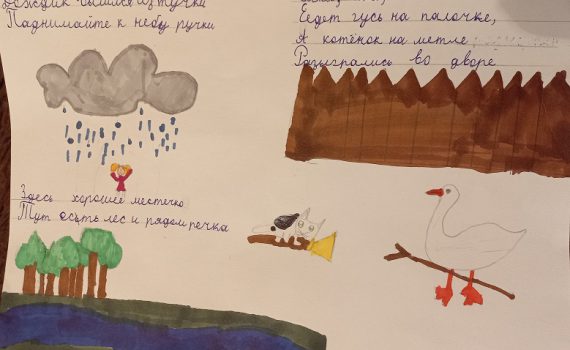 Дождик полился из тучки
Паднимайте к небу ручки
Здесь хорошее местечко
Тут есть лес и рядом речка
Едет гусь на палочке,
А котёнок на метле
Разыгрались во дворе